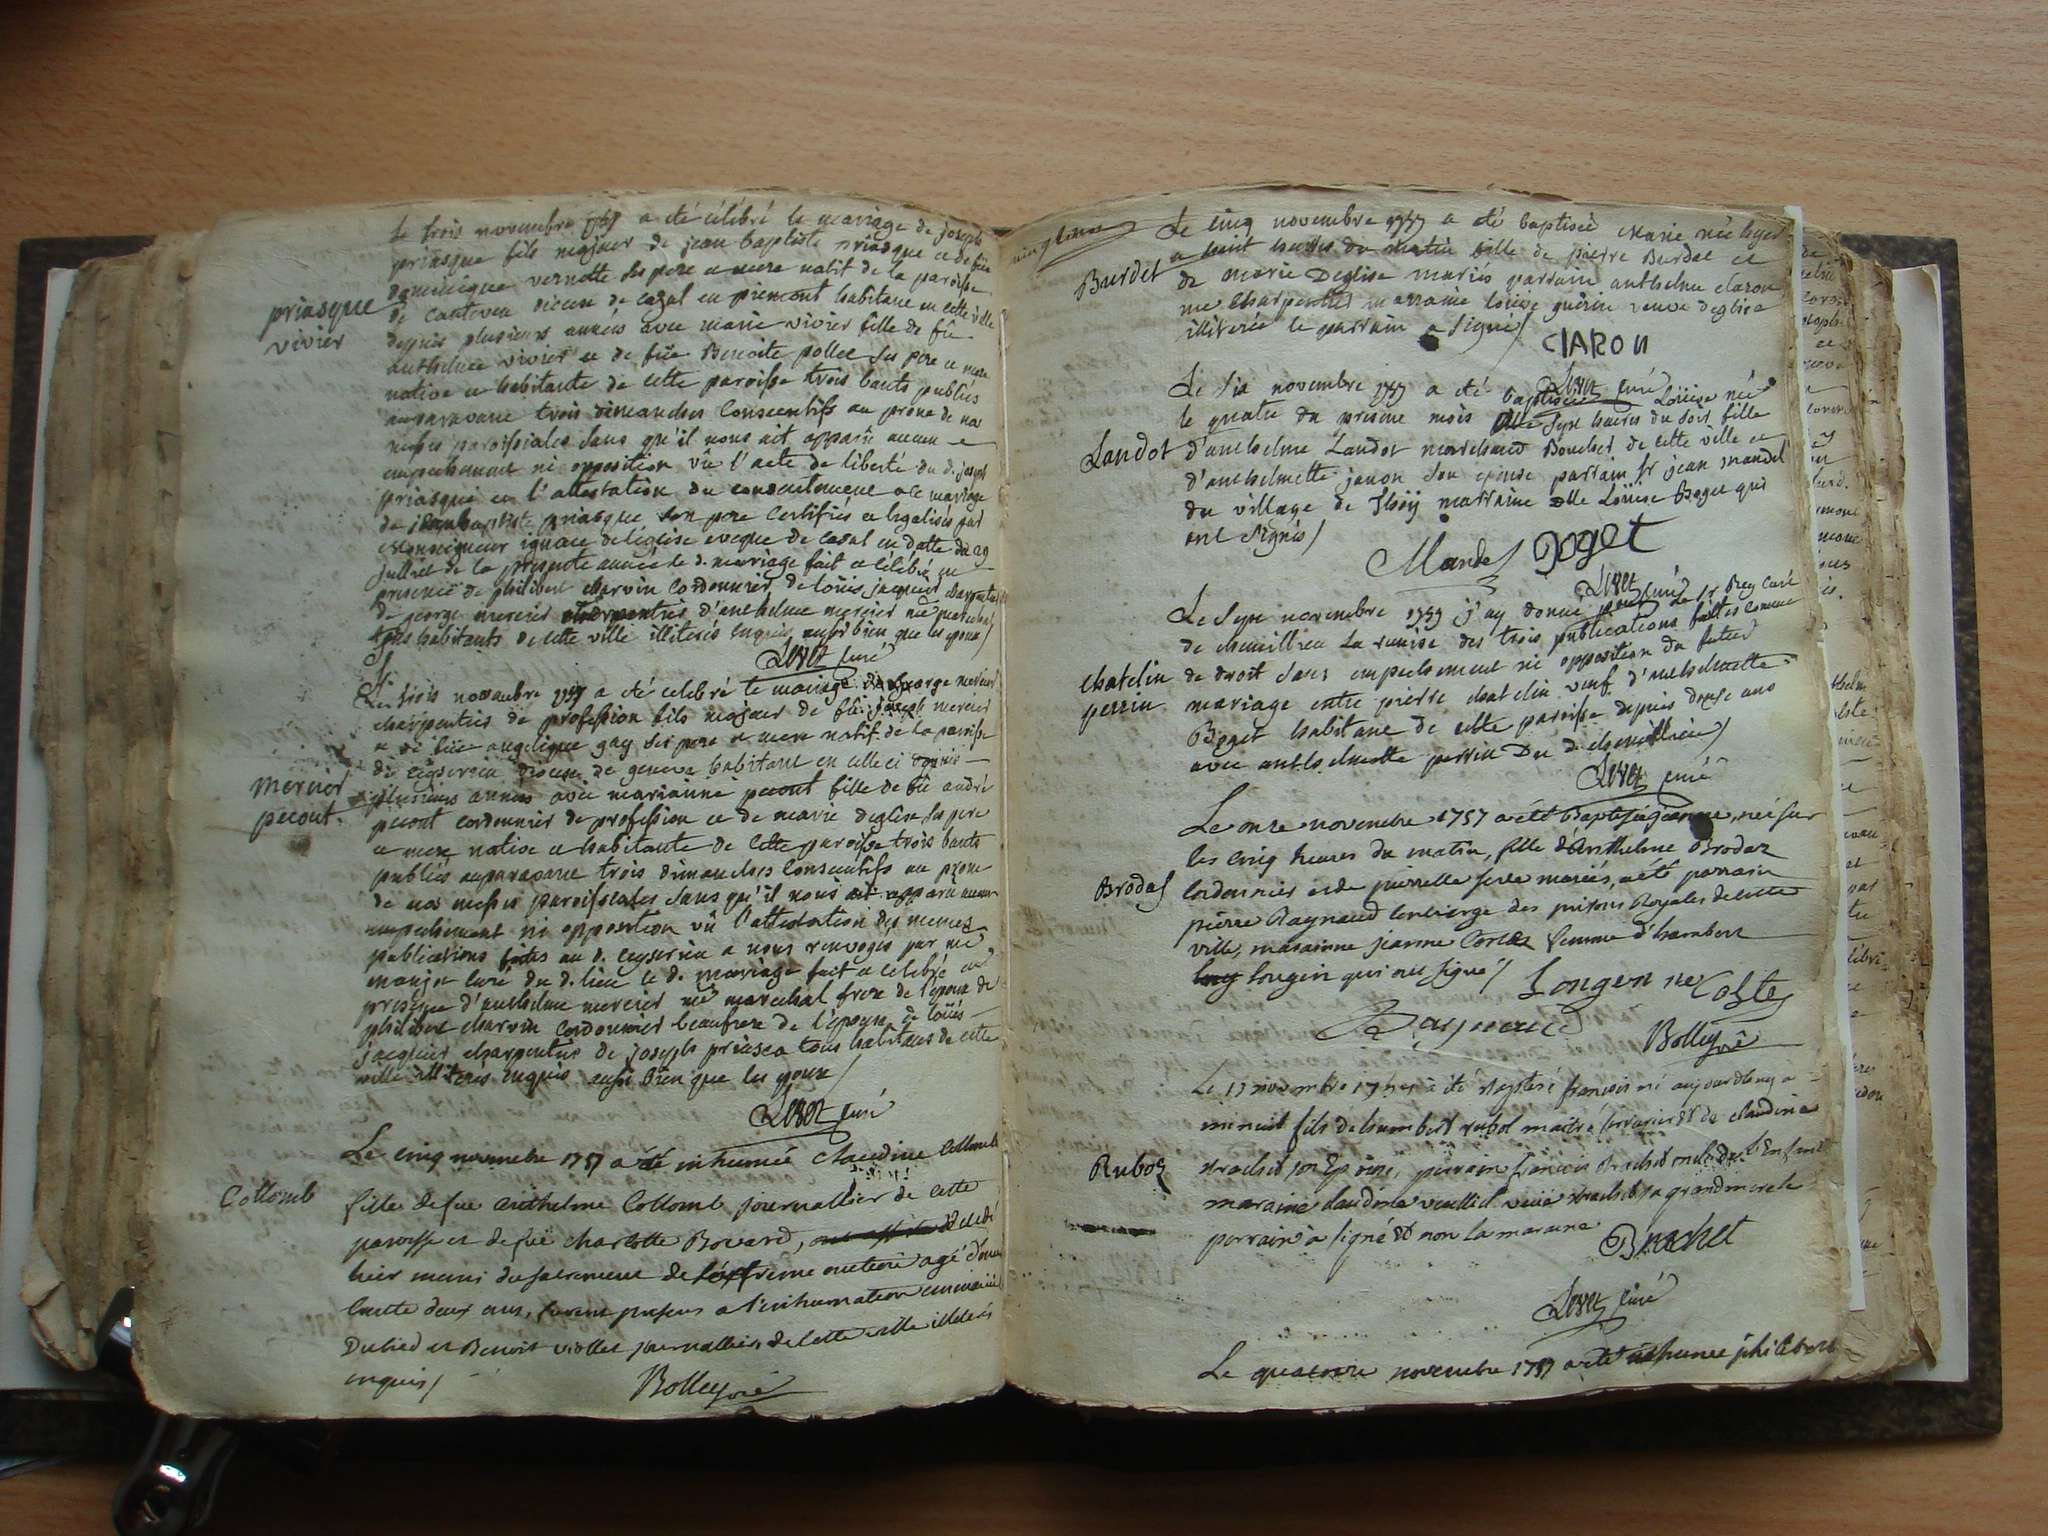 le trois novembre 1757 a été célébré le mariage de joseph
priasque fils majeur de jean baptiste priasque et de füe
dominique vernette ses pere et mere natif de la paroisse
de diocese de cazal en piemont habitant en cette ville
priasque
vivier
depuis plusieurs années avec marie vivier fille de fû
anthelme vivier et de füe Benoite pollet ses pere et mere
native et habitante de cette paroisse trois bants publiés
auparavant trois dimanches consecutifs au prone de nos
messes paroissiales sans qu'il nous ait apparu aucun
empechement ni opposition vû l'acte de liberté du d. joseph
priasque et l'attestation du consentement au mariage
de jean baptiste priasque son pere certifiés et legalisés par
Monseigneur ignace deléglise eveque de cazal en datte du 29
juillet de la presente année le d. mariage fait et célébré en
presence de philibert charvin cordonnier de loüis jacquier charpentier
de george mercier charpentier d'anthelme mercier me marechal
tous habitants de cette ville illiterés enquis aussi bien que les epoux/
Levet curé
Le trois novembre 1757 a été celebré le mariage de george mercier
charpentier de profession fils majeur de fû joseph mercier
et de füe angelique gay ses pere et mere natif de la paroisse
de ceyserieu diocese de geneve habitant en celle ci depuis
mercier
pecout.
plusieurs années avec marianne pecout fille de fû andré
pecout cordonnier de profession et de marie deglise ses pere
et mere native et habitante de cette paroisse trois bants
publiés auparavant trois dimanches consecutifs au prone
de nos messes paroissiales sans qu'il nous ait apparu aucun
empechement ni opposition vû l'attestation des memes
publications faites au d. ceyserieu a nous renvoyés par me
manjot curé du d. lieu le d. mariage fait et celebré en
presence d'anthelme mercier me marechal frere de l'epoux de
philibert charvin cordonnier beaufrere de l'epouse de loüis
jacquier charpentier de joseph priasca tous habitans de cette
ville illiterés enquis aussi bien que les epoux/
Levet curé
Le cinq novembre 1757 a été inhumée claudine Collomb
Collomb
fille de fue anthelme Collomb journallier de cette
paroisse et de füe charlotte Bovard, decedé
hier muni du sacrement de l'extreme onction agé d'environ
trente deux ans, furent presens a l'inhumation
Dulied et Benoit viollet journalliers de cette ville illiterés
enquis/
Bolley vic
Le cinq novembre 1757 a été baptisée Marie née hyer
a huit heures du matin fille de pierre Burdet et
Burdet
de marie Deglise mariés parrain anthelme claron
me charpentier marraine loüise guérin veuve deglise
illiterée le parrain a signé/
CLARON
Levet curé
Le six novembre 1757 a été baptisée Loüise née
le quatre du present mois sept heures du soir fille
Landot
d'anthelme Landot marchand Boucher de cette ville et
d'anthelmette janon son epouse parrain sr jean mandel
du village de marraine Dlle Loüise Boget qui
ont signés/
Mandel Boget
Levet curé
Le sept novembre 1757 j'ay donné pour le sr Rey curé
de cheuillieu La remise des trois publications faittes comme
chatelin
perrin
de droit sans empechement ni opposition du futur
mariage entre pierre chatelin veuf d'anthelmette
Boget habitant de cette paroisse depuis douze ans
avec anthelmette perrin Du d. cheuillieu/
Levet curé
Le onze novembre 1757 a été Baptisée jeanne, née sur
les cinq heures du matin, fille d'Anthelme Brodaz
Brodaz
Cordonnier et de pierrette serre mariés, a été parrain
pierre Raynaud Concierge des prisons Royales de cette
ville, maraine jeanne Coste femme d'hambert
longin qui ont signé/
Longen ne Coste
Raynaud
Bolley vic
Le 13 novembre 1757 a été Baptisé francois né aujourdhuy a
minuit fils de humbert rubod maitre serrurier et de claudine
Rubod
Brachet son Epouse, parrain francois Brachet oncle de l'Enfant
maraine claudine veuve Brachet sa grandmere le
parrain à signé et non la maraine
Brachet
Levet curé
Le quatorze novembre 1757 a été inhumée philiberte